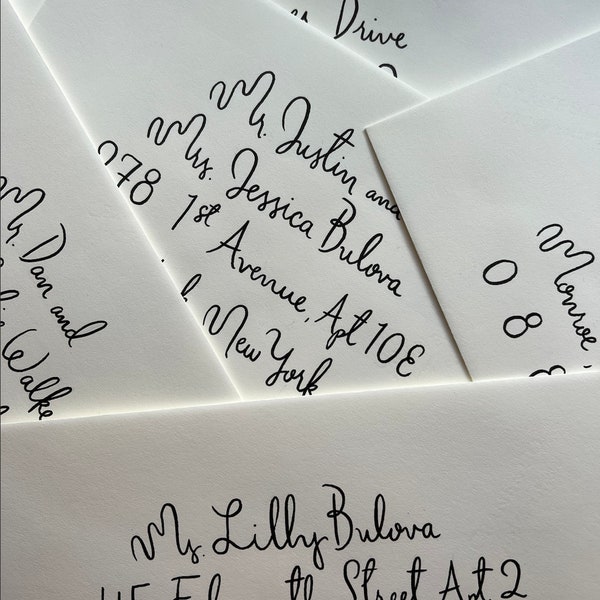 Drive
Mr. Justin and
Mrs. Jessica Bulova
278 1st Avenue, Apt 10E
New York
Mr. Dan and
Walke
Monroe,
0 8
Ms. Lilly Bulova
Street Apt. 2